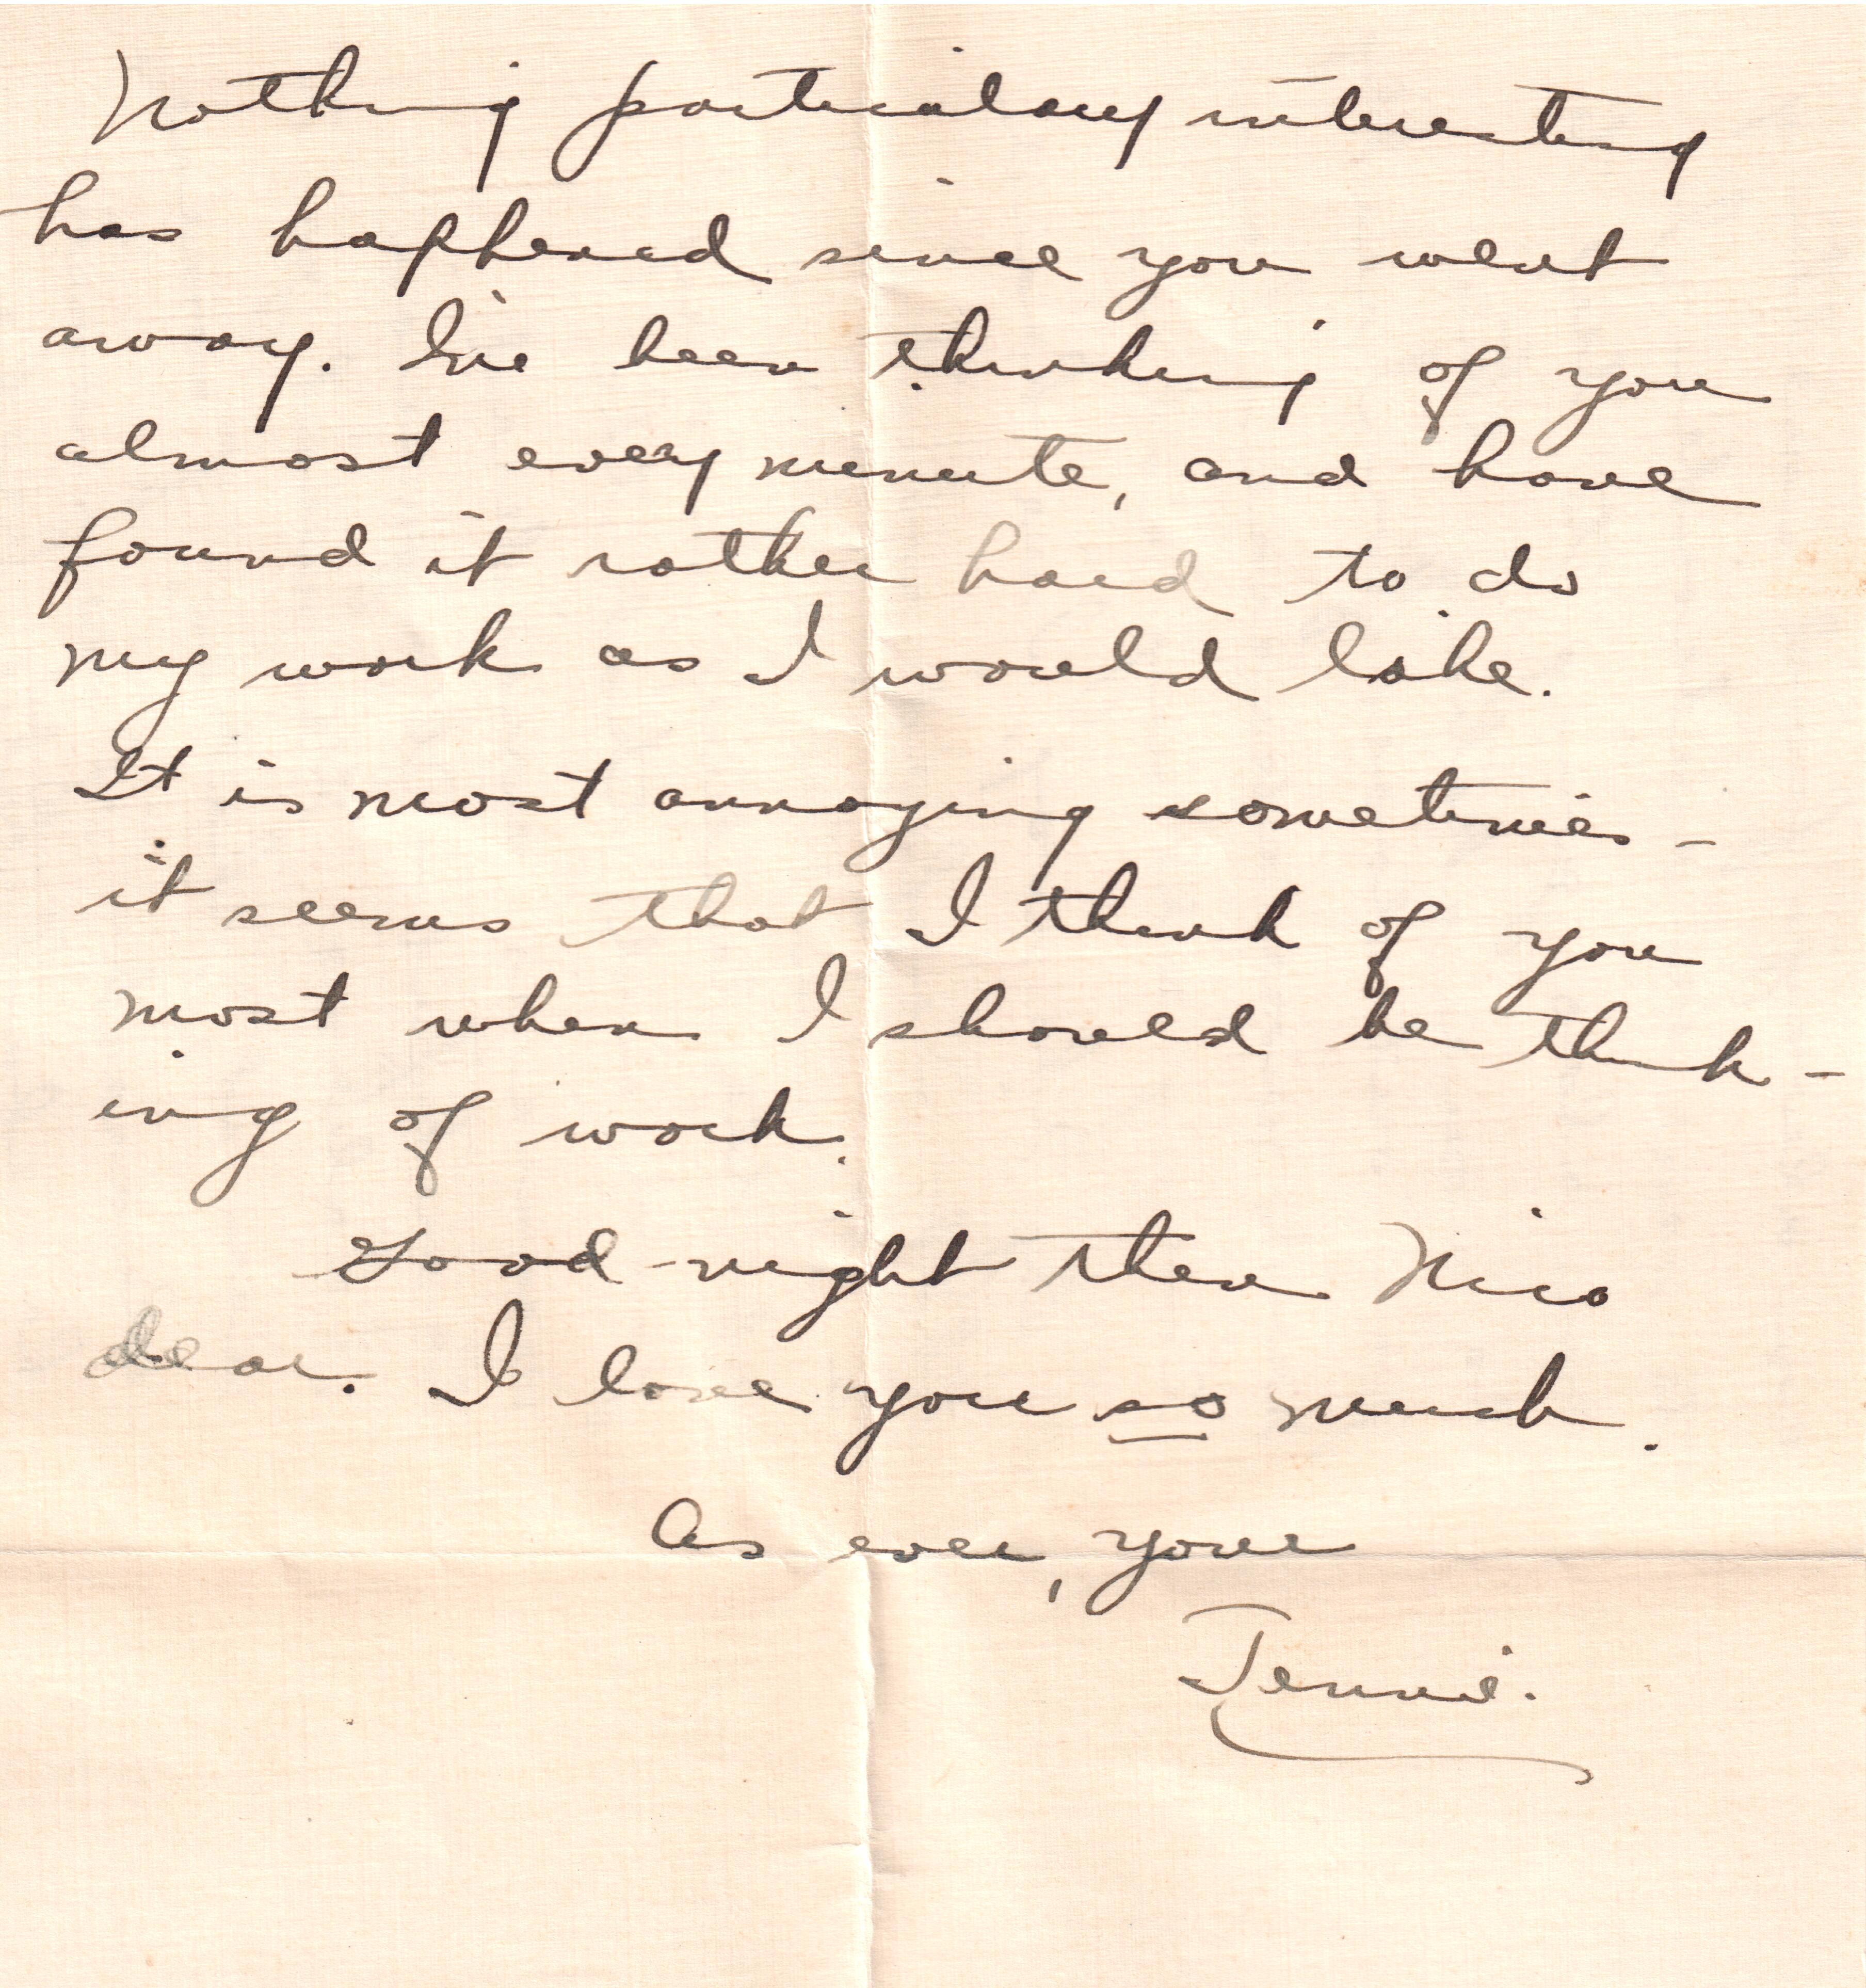 Nothing particulary interesting
has happened since you went
away. I've been thinking of you
almost every minute, and have
found it rather hard to do
my work as I would like.
It is most annoying sometimes -
it seems that I think of you
most when I should be think-
ing of work.
Good-night then Nico
dear. I love you so much.
As ever, your
Jennie.